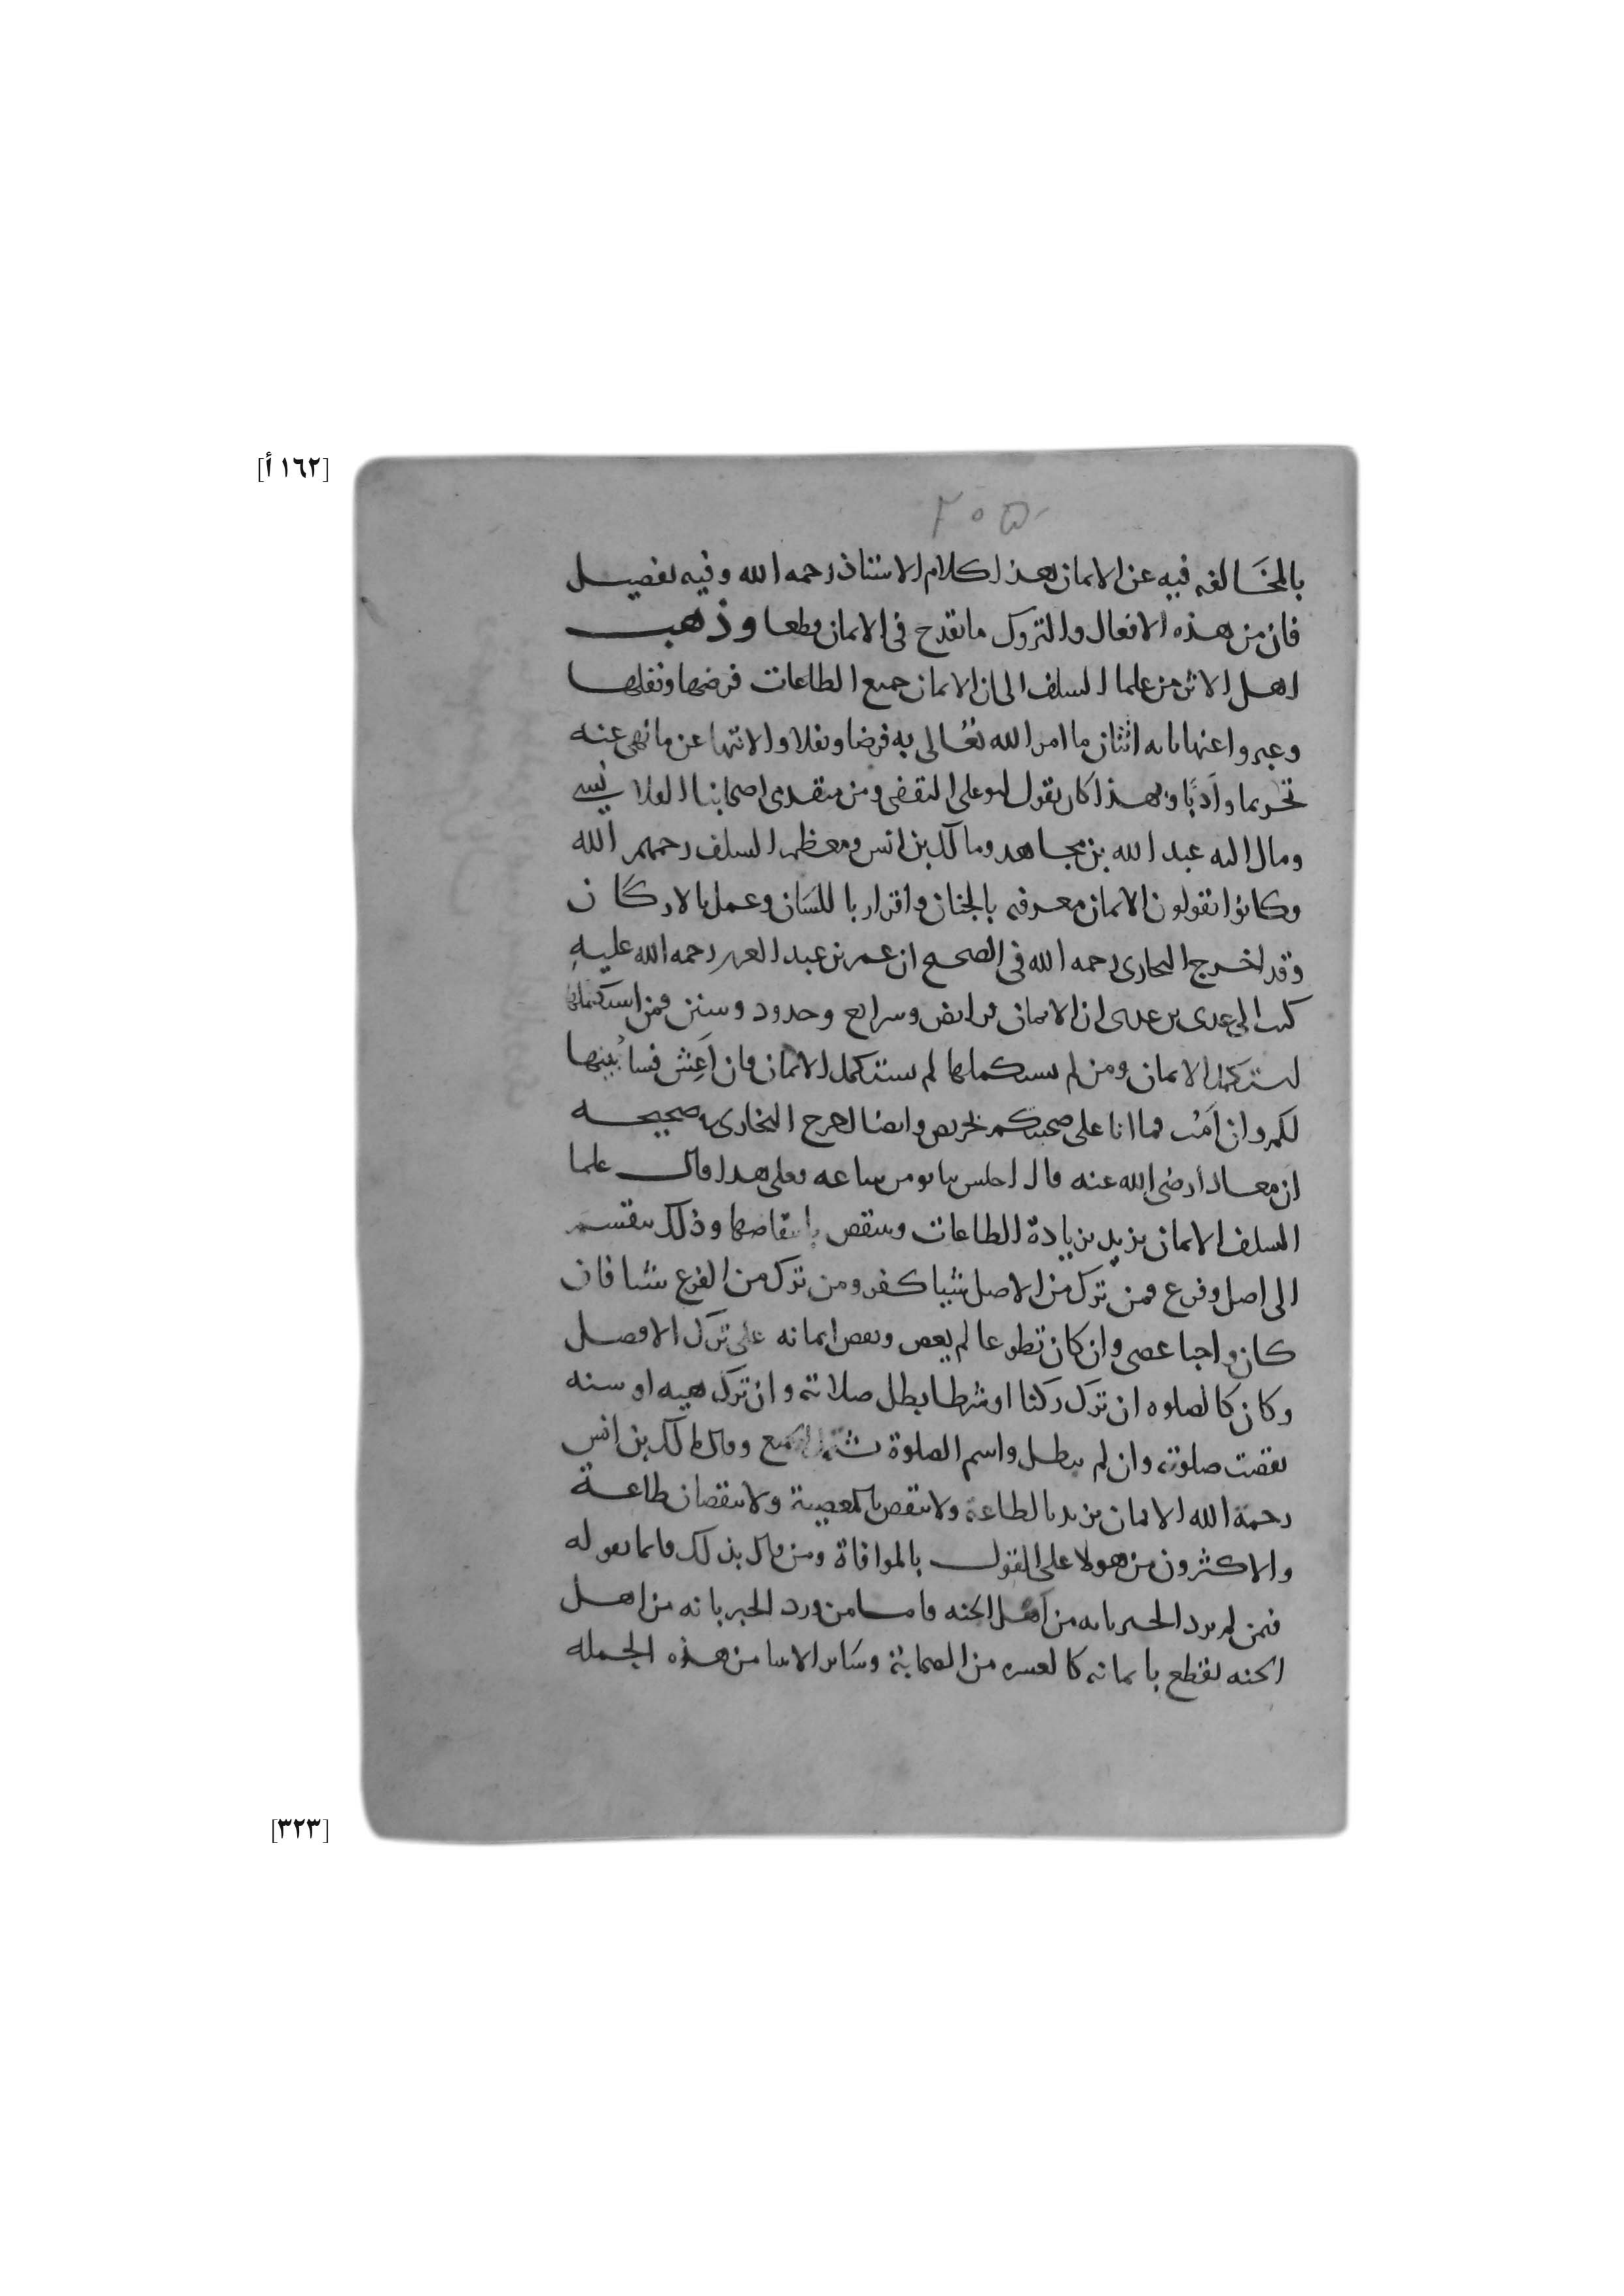 [١٦٢ أ]
٢٠٥
بالمخالفه فيه عن الايمان بهذا كلام الاستاذ رحمه الله وفيه تفصيل
فان من هذه الافعال والتروك ما يقدح في الايمان قطعا وذهب
اهل الاثر من علما السلف الى ان الايمان جميع الطاعات فرضها ونفلها
وعبروا عنها بانه اتيان ما امر الله تعالى به فرضا ونفلا والانتها عن ما نهى عنه
تحريما وادبا وبهذا كان يقول ابو على الثقفي ومن متقدمي اصحابنا القلانسي
ومال اليه عبد الله بن مجاهد ومالك بن انس ومعظم السلف رحمهم الله
وكانوا يقولون الايمان معرفه بالجنان واقرار باللسان وعمل بالاركان
وقد اخرج البخاري رحمه الله في الصحيح ان عمر بن عبد العزيز رحمه الله عليه
كتب الى عدي بن عدي ان الايمان فرايض وشرايع وحدود وسنن فمن استكملها
استكمل الايمان ومن لم يستكملها لم يستكمل الايمان فان اعش فسابينها
لكم وان امت فما انا على صحبتكم بحريص وايضا اخرج البخاري في صحيحه
ان معاذا رضي الله عنه قال اجلس بنا نومن ساعه فعلى هذا قال علما
السلف الايمان يزيد بزيادة الطاعات وينقص بانتقاصها وذلك ينقسم
الى اصل وفرع فمن ترك من الاصل شيا كفر ومن ترك من الفرع شيا فان
كان واجبا عصى وان كان تطوعا لم يعص ونقص ايمانه على ترك الافضل
وكان كالصلوه ان ترك ركنا او شرطا بطل صلاته وان ترك هيه او سنه
نقصت صلوته وان لم يبطل واسم الصلوة يشمل الجميع وقال مالك بن انس
رحمة الله الايمان يزيد بالطاعة ولا ينقص بالمعصية ولا بنقصان طاعة
والاكثرون من هولا على القول بالموافاة ومن قال بذلك فانما يقوله
فيمن لم يرد الخبر بانه من اهل الجنه فاما من ورد الخبر بانه من اهل
الجنه يقطع بايمانه كالعشره من الصحابة وساير الانبيا من هذه الجمله
[٣٢٣]